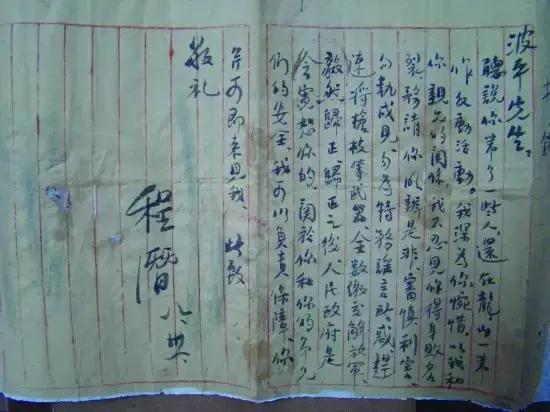 波平先生:
聽說你带了一些人還在龍山一带
作反動活動。我深為你惋惜。以我和
你親兄的関係我不忍見你得身敗名
裂,務請你明辨是非,審慎利害,
勿執成見,勿為特務謠言所惑,趕
速將槍枝等武器全数繳交解放軍,
毅然歸正。歸正之後,人民政府是
會寬恕你的,関於你和你的弟兄
們的安全,我可以負責保障。你
可即来見我。此致
敬礼
程潛